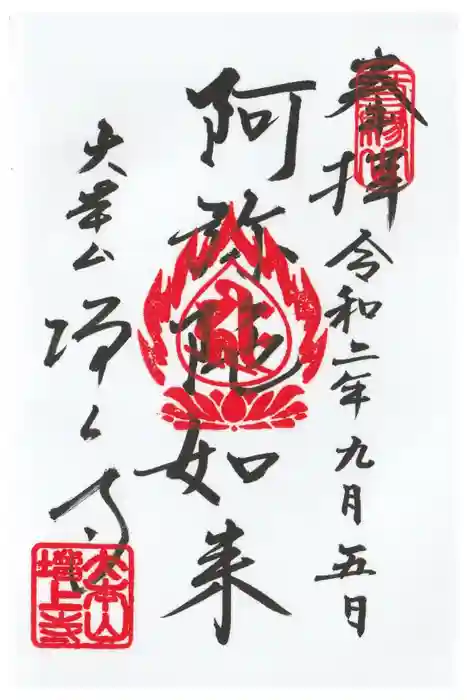 奉拝
令和二年九月五日
阿弥陀如来
大本山
増上寺
大本山
増上寺